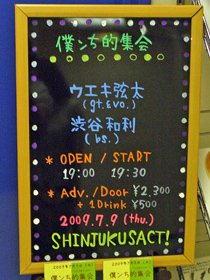 僕ンち的集会
ウエキ弦太
(gt.&vo.)
渋谷和利
(bs.)
* OPEN / START
19:00 19:30
* Adv./Door ¥2,300
+1Drink ¥500
2009.7.9 (thu.)
SHINJUKUSACT!
僕ンち的集会
僕ンち的集会